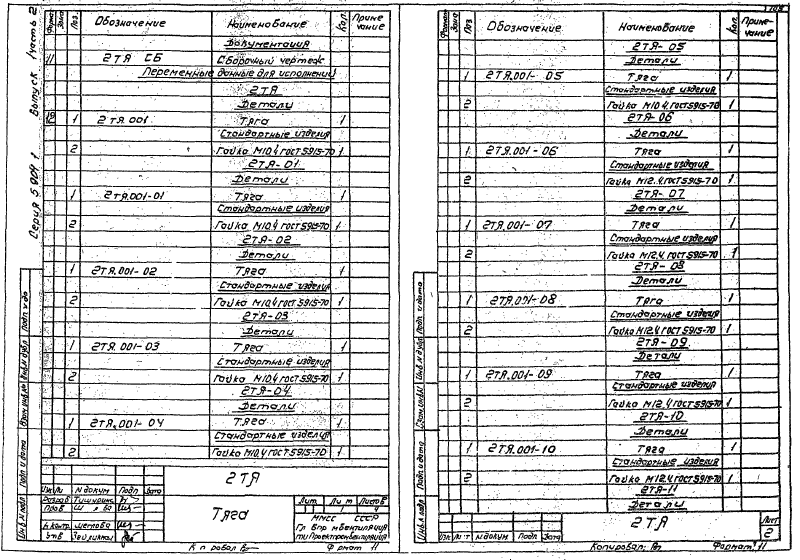 Серия 5.904-1 Выпуск 1 часть 2
Формат Зона Поз. Обозначение Наименование Кол. Приме-
чание
Документация
11 2ТЯ СБ Сборочный чертеж
Переменные данные для исполнений
2ТЯ
Детали
12 1 2ТЯ.001 Тяга 1
Стандартные изделия
2 Гайка М10.4 ГОСТ 5915-70 1
2ТЯ-01
Детали
1 2ТЯ.001-01 Тяга 1
Стандартные изделия
2 Гайка М10.4 ГОСТ 5915-70 1
2ТЯ-02
Детали
1 2ТЯ.001-02 Тяга 1
Стандартные изделия
2 Гайка М10.4 ГОСТ 5915-70 1
2ТЯ-03
Детали
1 2ТЯ.001-03 Тяга 1
Стандартные изделия
2 Гайка М10.4 ГОСТ 5915-70 1
2ТЯ-04
Детали
1 2ТЯ.001-04 Тяга 1
Стандартные изделия
2 Гайка М10.4 ГОСТ 5915-70 1
2ТЯ
Изм Ли N докум Подп Дата
Разраб
Пров
Н.контр
Утв
Тяга
Лит. Лист Листов
1 4
ММСС СССР
Копировал
Формат 11
Инв.N подл Подп. и дата Взам.инв.N Инв.N дубл Подп. и да
Формат Зона Поз Обозначение Наименование Кол. Приме-
чание
2ТЯ-05
Детали
1 2ТЯ.001-05 Тяга 1
Стандартные изделия
2 Гайка М10.4 ГОСТ 5915-70 1
2ТЯ-06
Детали
1 2ТЯ.001-06 Тяга 1
Стандартные изделия
2 Гайка М12.4 ГОСТ 5915-70 1
2ТЯ-07
Детали
1 2ТЯ.001-07 Тяга 1
Стандартные изделия
2 Гайка М12.4 ГОСТ 5915-70 1
2ТЯ-08
Детали
1 2ТЯ.001-08 Тяга 1
Стандартные изделия
2 Гайка М12.4 ГОСТ 5915-70 1
2ТЯ-09
Детали
1 2ТЯ.001-09 Тяга 1
Стандартные изделия
2 Гайка М12.4 ГОСТ 5915-70 1
2ТЯ-10
Детали
1 2ТЯ.001-10 Тяга 1
Стандартные изделия
2 Гайка М12.4 ГОСТ 5915-70 1
2ТЯ-11
Детали
Изм Лит N докум Подп Дата
2ТЯ
Лист
2
Копировал
Формат 11
Инв.N подл Подп и дата Инв.N дубл Подп. и дата